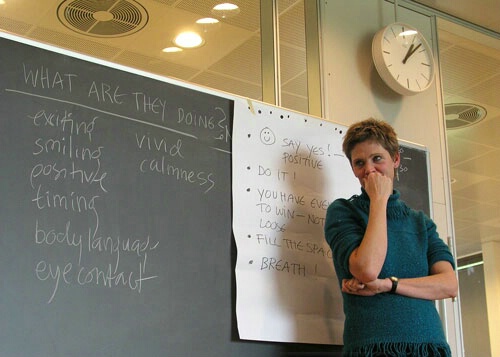 WHAT ARE THEY DOING?
exiting
smiling
positive
timing
body language
eye contact
vivid
calmness
SAY YES!
POSITIVE
DO IT!
YOU HAVE EVE
TO WIN - NOT
LOOSE
FILL THE SPAC
BREATH!